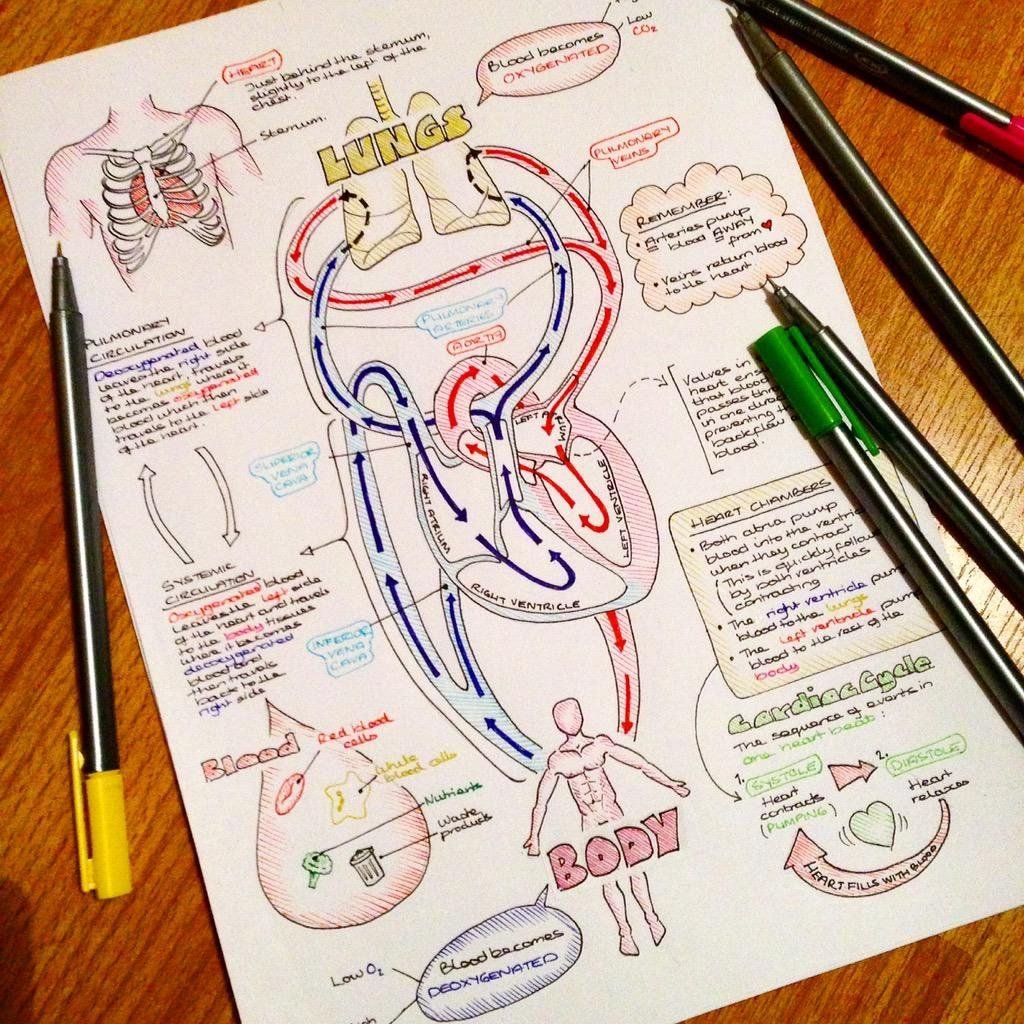 HEART
Just behind the sternum,
slightly to the left of the
chest.
Sternum.
LUNGS
Blood becomes
OXYGENATED
Low
CO₂
PULMONARY
VEINS
REMEMBER:
• Arteries pump
blood AWAY
from ♥
• Veins return blood
to the heart
PULMONARY
ARTERIES
AORTA
PULMONARY
CIRCULATION
Deoxygenated blood
leaves the right side
of the heart, travels
to the lungs where it
becomes oxygenated
blood which then
travels to the left side
of the heart.
SUPERIOR
VENA
CAVA
LEFT ATRIUM
RIGHT ATRIUM
LEFT VENTRICLE
RIGHT VENTRICLE
Valves in
heart
that blood
passes
in one
preventing
backflow
blood.
HEART CHAMBERS
• Both atria pump
blood into the
when they contract
(This is quickly
by both ventricles
contracting
• The right ventricle
blood to the lungs
• The left ventricle
blood to the rest of the
body
SYSTEMIC
CIRCULATION
Oxygenated blood
leaves the left side
of the heart and travels
to the body tissues
where it becomes
deoxygenated
blood and
then travels
back to the
right side
INFERIOR
VENA
CAVA
Blood
Red blood
cells
White
blood cells
Nutrients
Waste
products
BODY
Cardiac Cycle
The sequence of events in
one heart beat:
1.
SYSTOLE
Heart
contracts
(PUMPING)
2.
DIASTOLE
Heart
relaxes
HEART FILLS WITH BLOOD
Low O₂
Blood becomes
DEOXYGENATED